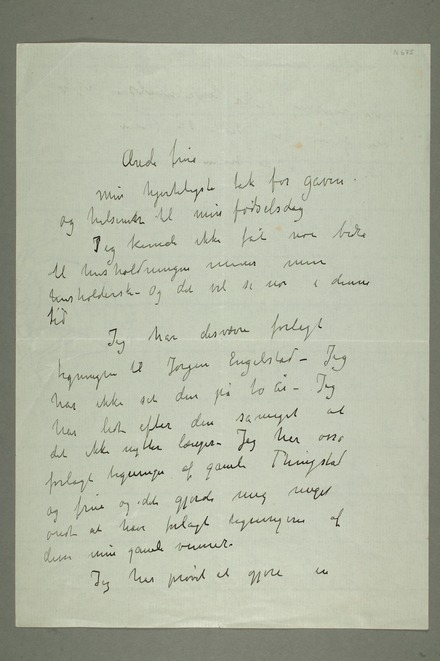 N 685
Ærede frue
min hjerteligste tak for gaven.
og hilsenen til min fødselsdag
Jeg kunde ikke fåt noe bedre
til husholdningen mener min
husholderske og det vil si noe i denne
tid
Jeg har desværre forlagt
tegningen til Jørgen Engelstad – Jeg
har ikke set den på to år – Jeg
har lett efter den så meget at
det ikke nytter længer – Jeg har også
forlagt tegninge af gamle Thingstad
og frue og det gjorde mig meget
ondt at have forlagt tegningerne af
disse mine gamle venner.
Jeg har prøvd at gjøre en